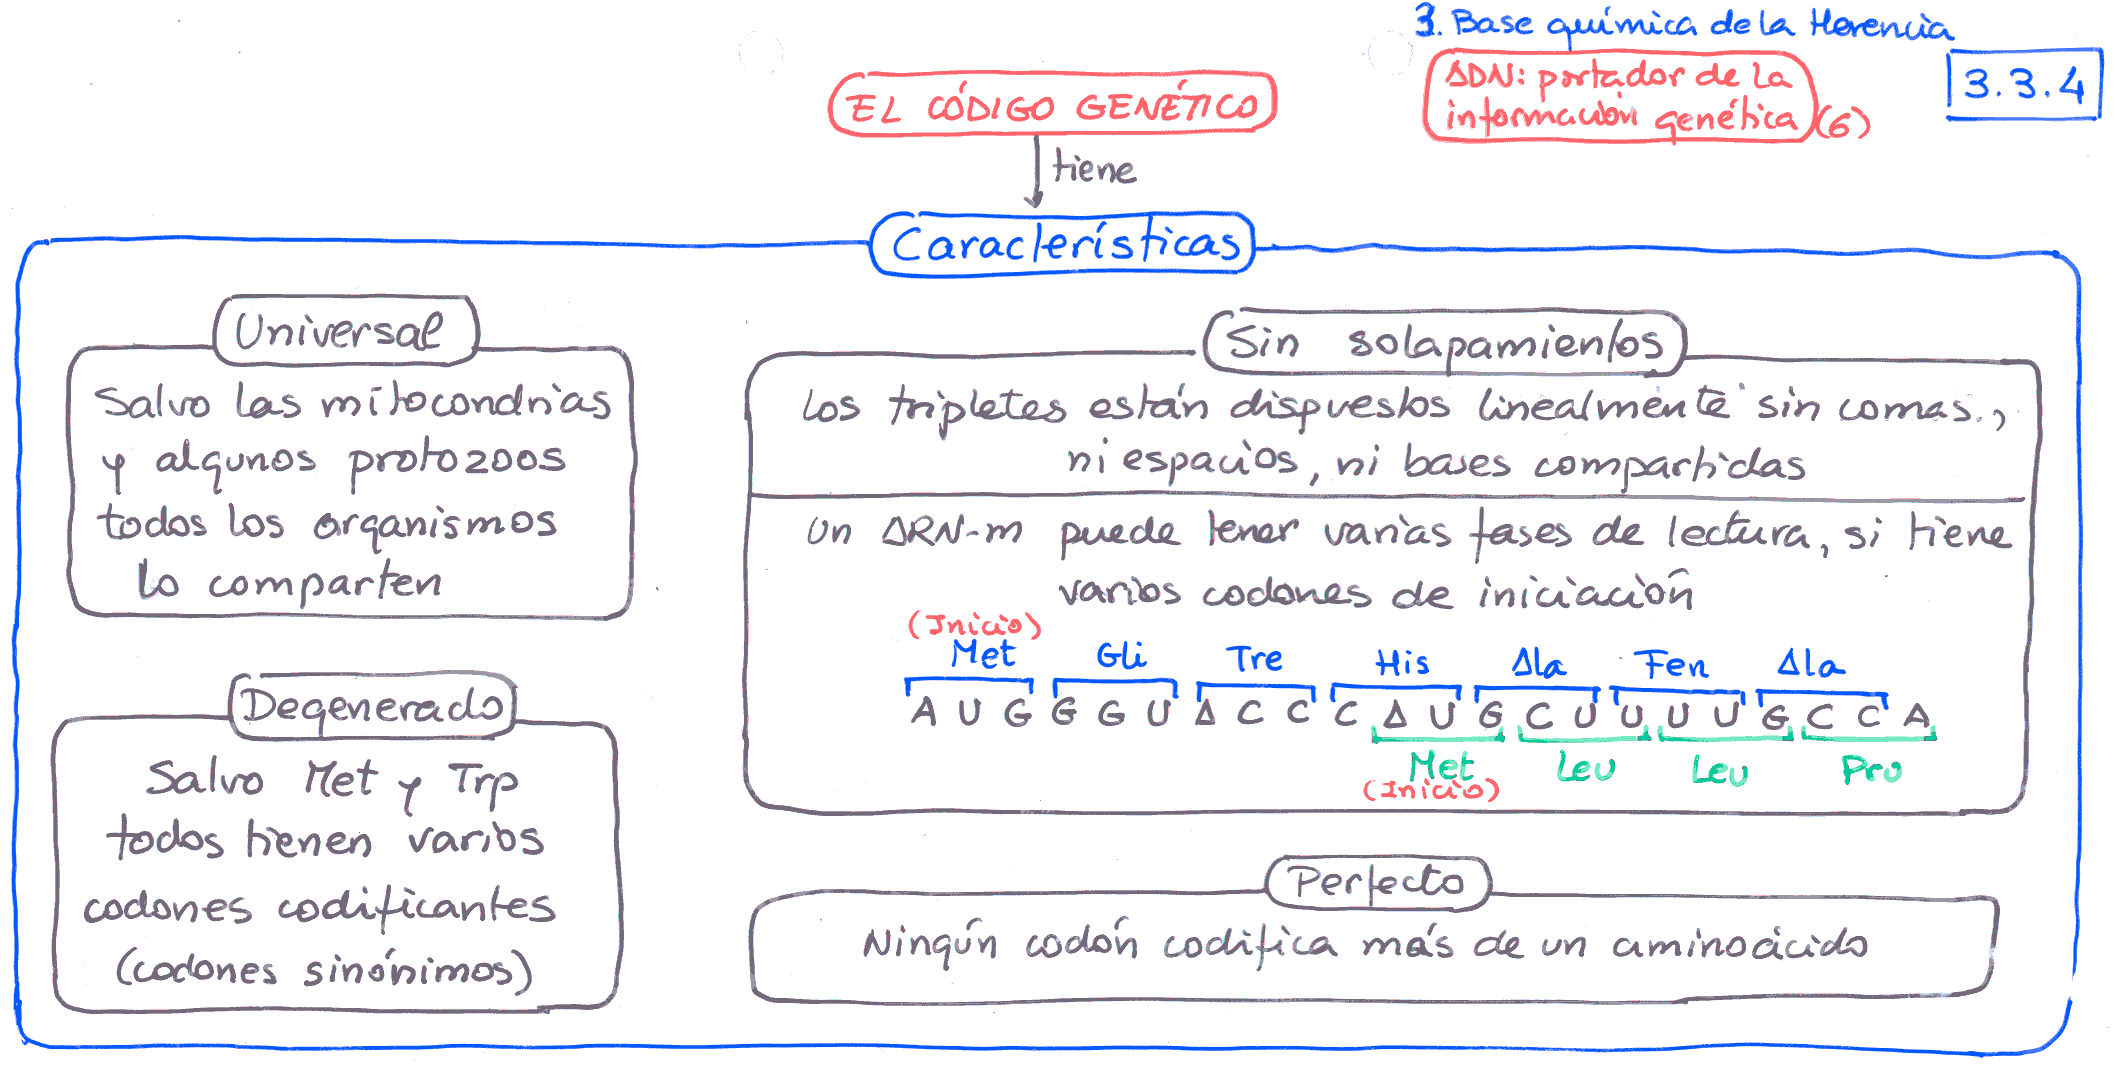 3. Base química de la Herencia
ADN: portador de la
información genética (6)
3.3.4
EL CÓDIGO GENÉTICO
tiene
Características
Universal
Salvo las mitocondrias
y algunos protozoos
todos los organismos
lo comparten
Degenerado
Salvo Met y Trp
todos tienen varios
codones codificantes
(codones sinónimos)
Sin solapamientos
Los tripletes están dispuestos linealmente sin comas.,
ni espacios, ni bases compartidas
Un ARN-m puede tener varias fases de lectura, si tiene
varios codones de iniciación
(Inicio)
Met Gli Tre His Ala Fen Ala
A U G G G U A C C C A U G C U U U U G C C A
Met Leu Leu Pro
(Inicio)
Perfecto
Ningún codón codifica más de un aminoácido